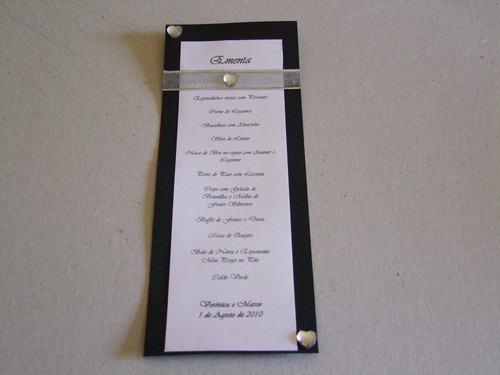 Ementa
com Presunto
Creme de Legumes
Bacalhau com
de Limão
Naco de Boi no espeto com Ananás e
Legumes
Peito de Pato com Laranja
Crepe com Gelado de
Baunilha e Molho de
Frutos Silvestres
Buffet de Frutas e Doces
Mesa de Queijos
Bolo de Noiva e Espumante
Mini Prego no Pão
Caldo Verde
Verónica e Marco
1 de Agosto de 2010